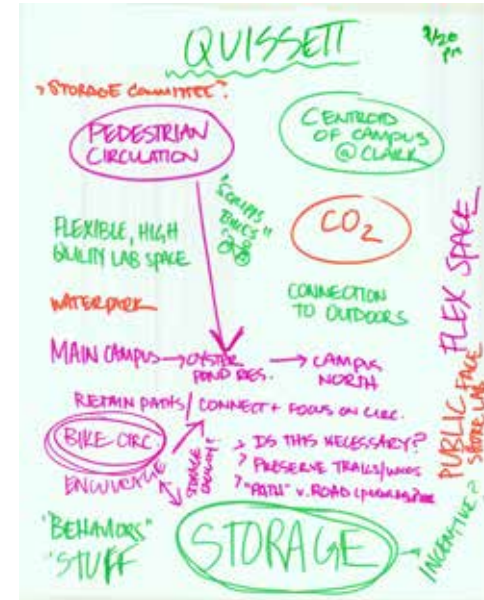 QUISSETT
9/20
pm
> STORAGE COMMITTEE?
PEDESTRIAN
CIRCULATION
CENTROID
OF CAMPUS
@ CLARK
"SCRIPPS
BIKES"
FLEXIBLE, HIGH
QUALITY LAB SPACE
CO2
WATERPARK
CONNECTION
TO OUTDOORS
MAIN CAMPUS → OYSTER
POND RES. → CAMPUS
NORTH
RETAIN PATHS / CONNECT + FOCUS ON CIRC.
BIKE CIRC
ENCOURAGE
STORAGE
> IS THIS NECESSARY?
> PRESERVE TRAILS/WOODS
> "PATH" v. ROAD
"BEHAVIORS"
"STUFF
STORAGE
INCENTIVE?
FLEX SPACE
PUBLIC FACE
STORE LAB